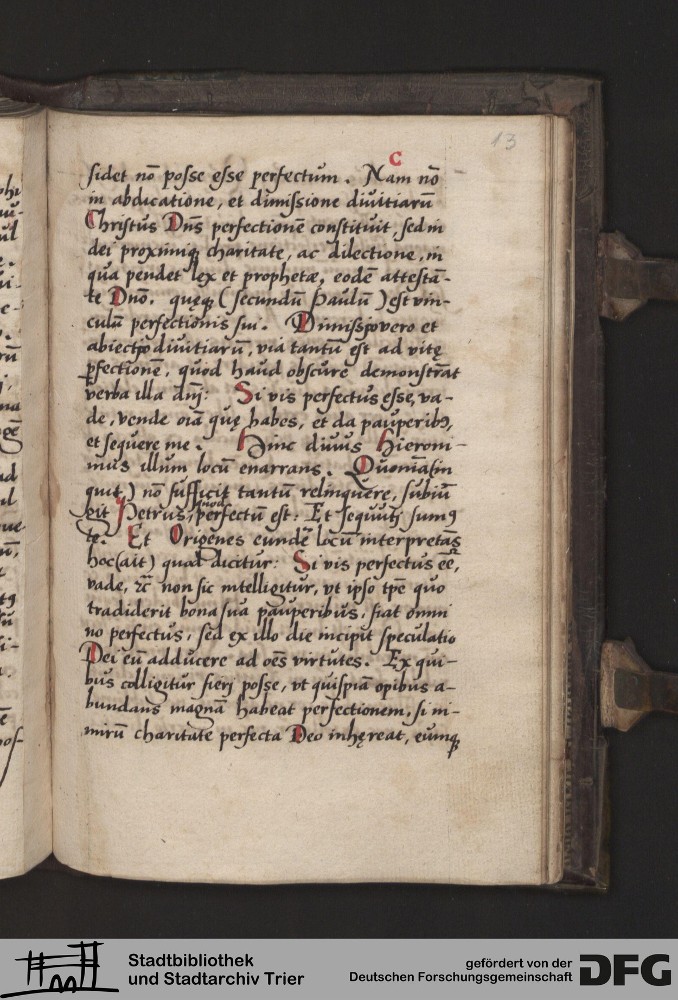 13
C
sidet nō posse esse perfectum. Nam nō
in abdicatione, et dimissione diuitiarū
Christus Dn̄s perfectionē constituit, sed in
dei proximiq; charitate, ac dilectione, in
qua pendet lex et prophetæ, eodē attestā-
te Dn̄o. quęq; (secundū Paulū) est vin-
culū perfectionis sui. Dimissio vero et
abiectio diuitiarū, via tantū est ad vitę
ꝑfectionē, quod haud obscure demonstrāt
verba illa dn̄j: Si vis perfectus esse, va-
de, vende oīa quę habes, et da pauperibꝫ,
et sequere me. Hinc diuus Hieroni-
mus illum locū enarrans. Quoniā (in
quit) nō sufficit tantū relinquere, subiū
git Petrus, quod perfectū est: Et sequuti sumꝰ
te. Et Origenes eundē locū interpretās
hoc (ait) quod dicitur: Si vis perfectus eē,
vade, ⁊c̄ non sic intelligitur, vt ipso tp̄e quo
tradiderit bona sua pauperibus, fiat omni
no perfectus, sed ex illo die incipit speculatio
Dei eū adducere ad oēs virtutes. Ex qui-
bus colligitur fierj posse, vt quispiā opibus a-
bundans magnā habeat perfectionem, si ni-
mirū charitate perfecta Deo inhęreat, eumq;
Stadtbibliothek
und Stadtarchiv Trier
gefördert von der
Deutschen Forschungsgemeinschaft
DFG